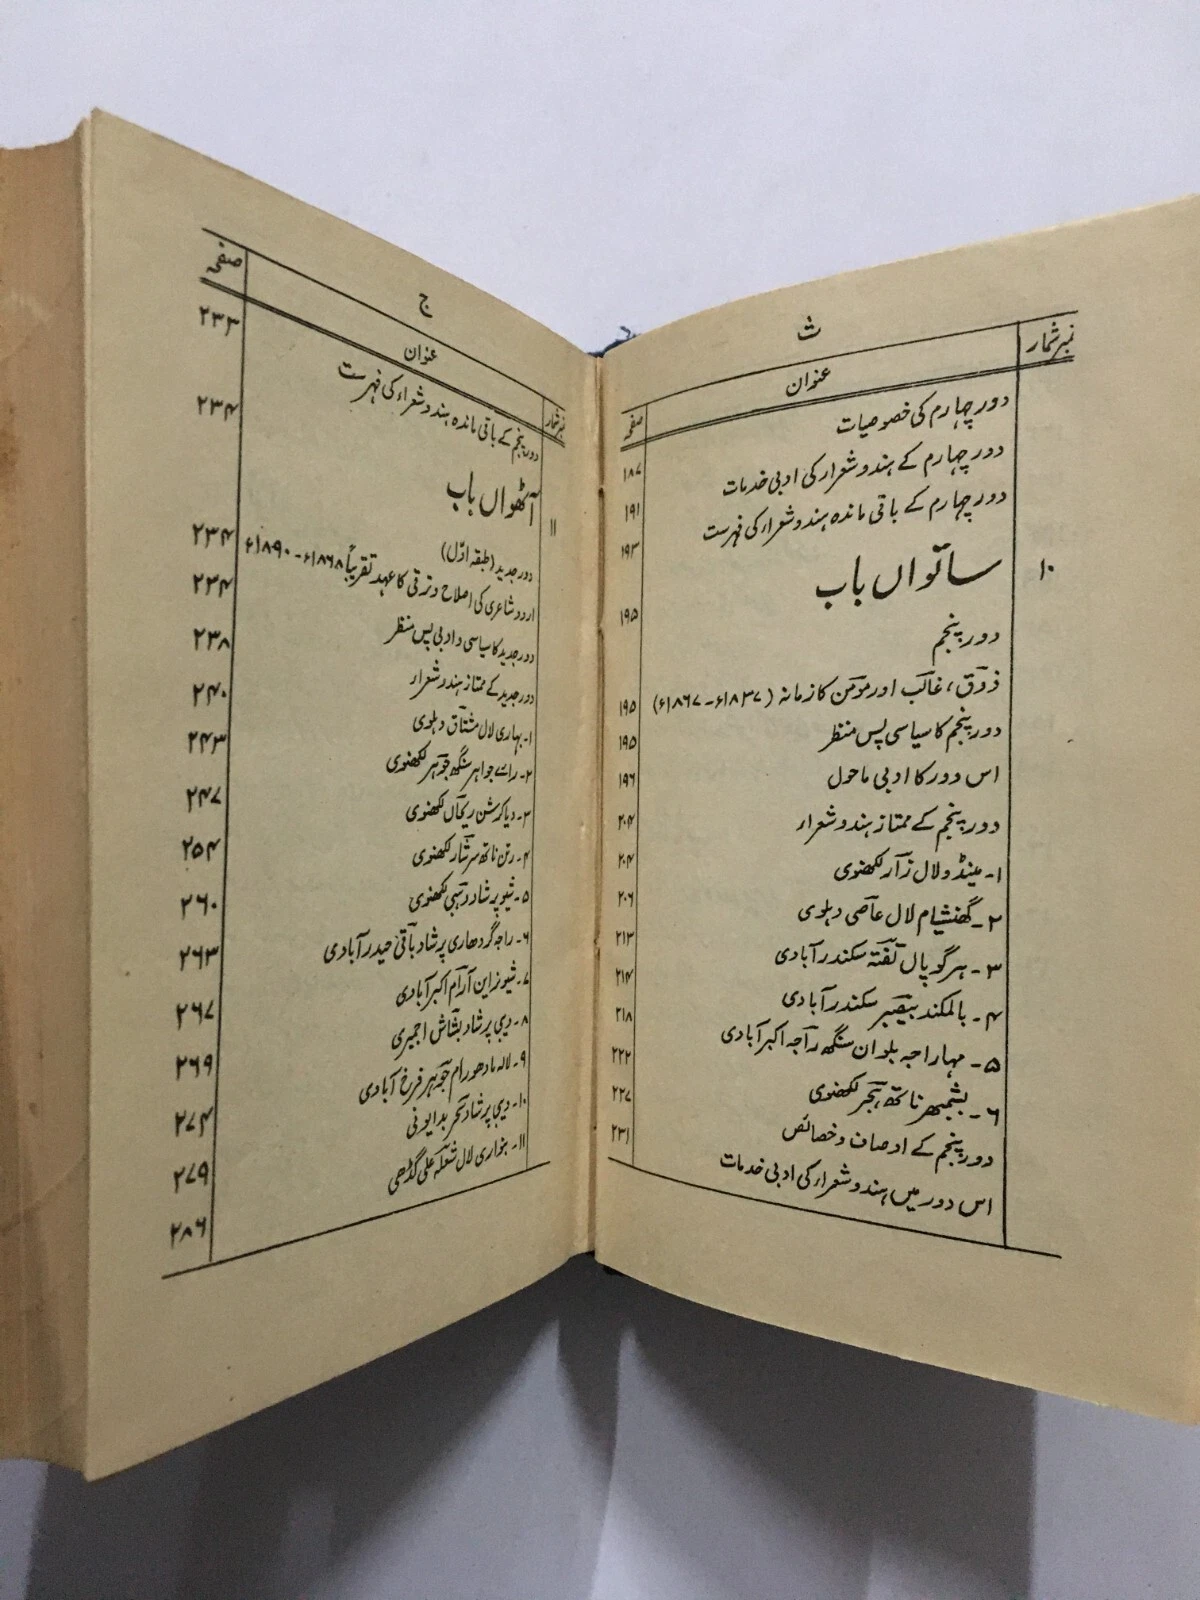 ث
نمبر شمار عنوان صفحہ
دور چہارم کی خصوصیات ۱۸۷
دور چہارم کے ہندو شعراء کی ادبی خدمات ۱۹۱
دور چہارم کے باقی ماندہ ہندو شعراء کی فہرست ۱۹۳
۱۰ ساتواں باب ۱۹۵
دور پنجم
ذوق، غالب اور مومن کا زمانہ (۱۸۳۷ء - ۱۸۶۷ء) ۱۹۵
دور پنجم کا سیاسی پس منظر ۱۹۵
اس دور کا ادبی ماحول ۱۹۶
دور پنجم کے ممتاز ہندو شعراء ۲۰۴
۱- مینڈو لال زار لکھنوی ۲۰۴
۲- گھنشیام لال عاصی دہلوی ۲۰۶
۳- ہرگوپال تفتہ سکندرآبادی ۲۱۳
۴- بالمکند بیصبر سکندرآبادی ۲۱۴
۵- مہاراجہ بلوان سنگھ راجہ اکبرآبادی ۲۱۸
۶- بشمبھر ناتھ ہجر لکھنوی ۲۲۲
دور پنجم کے اوصاف و خصائص ۲۲۷
اس دور میں ہندو شعراء کی ادبی خدمات ۲۳۱
ج
نمبر شمار عنوان صفحہ
دور پنجم کے باقی ماندہ ہندو شعراء کی فہرست ۲۳۳
۱۱ آٹھواں باب ۲۳۴
دور جدید (طبقہ اوّل)
اردو شاعری کی اصلاح و ترقی کا عہد تقریباً ۱۸۶۸ء - ۱۸۹۰ء ۲۳۴
دور جدید کا سیاسی و ادبی پس منظر ۲۳۴
دور جدید کے ممتاز ہندو شعراء ۲۳۸
۱- بہاری لال مشتاق دہلوی ۲۴۰
۲- رائے جواہر سنگھ جوہر لکھنوی ۲۴۳
۳- دیا کرشن ریحاں لکھنوی ۲۴۷
۴- رتن ناتھ سرشار لکھنوی ۲۵۴
۵- شیو پرشاد وہبی لکھنوی ۲۶۰
۶- راجہ گردھاری پرشاد باقی حیدرآبادی ۲۶۳
۷- شیو نراین آرام اکبرآبادی ۲۶۷
۸- دیبی پرشاد بشاش اجمیری ۲۶۹
۹- لالہ مادھو رام جوہر فرخ آبادی ۲۷۴
۱۰- دیبی پرشاد سحر بدایونی ۲۷۹
۱۱- بنواری لال شعلہ علی گڈھی ۲۸۶